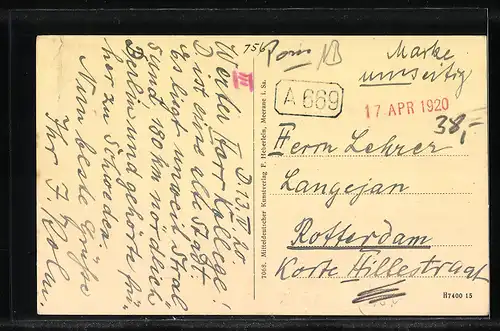 756
D. 13. IV. 20
Werter Herr Kollege!
D. ist eine alte Stadt.
Es liegt unweit Stral
sund 180 km nördlich
Berlin und gehörte frü
her zu Schweden.
Nun beste Grüße
Ihr J.
III
Pom
Marke
umseitig
A 669
17 APR 1920
38,-
Herrn Lehrer
Langejan
Rotterdam
Korte Hillestraat
7068. Mitteldeutscher Kunstverlag P. Heberlein, Meerane i. Sa.
H7400 15